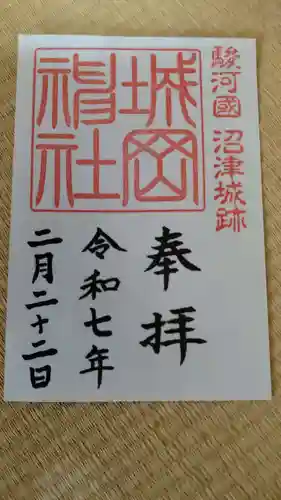 駿河國 沼津城跡
城岡神社
奉拝
令和七年
二月二十二日